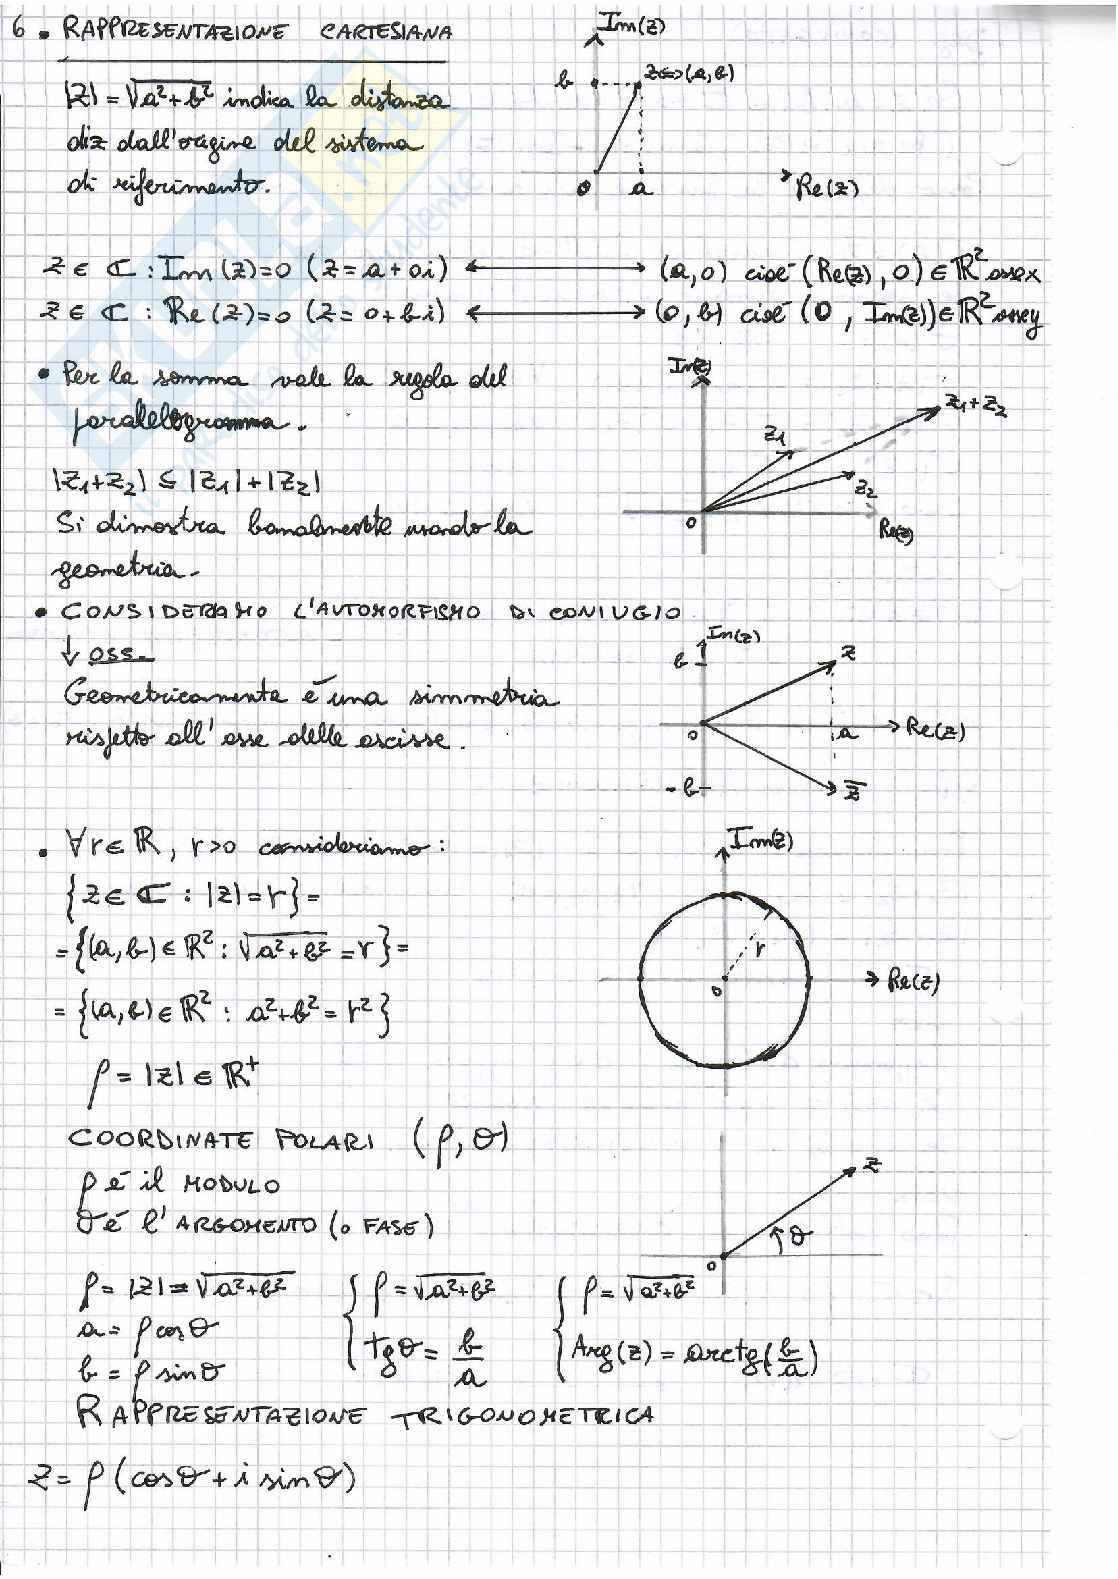 6 • RAPPRESENTAZIONE CARTESIANA
|z| = √a²+b² indica la distanza
di z dall'origine del sistema
di riferimento.
Im(z)
b
z⇔(a,b)
0
a
Re(z)
z ∈ ℂ : Im(z)=0 (z = a + 0i) ⟷ (a,0) cioè (Re(z), 0) ∈ ℝ² asse x
z ∈ ℂ : Re(z)=0 (z = 0 + bi) ⟷ (0,b) cioè (0, Im(z)) ∈ ℝ² asse y
• Per la somma vale la regola del
parallelogramma.
|z₁+z₂| ≤ |z₁|+|z₂|
Si dimostra banalmente usando la
geometria.
Im(z)
z₁
z₁+z₂
z₂
0
Re(z)
• CONSIDERIAMO L'AUTOMORFISMO DI CONIUGIO
↓ oss.
Geometricamente é una simmetria
rispetto all'asse delle ascisse.
Im(z)
b
z
0
a
Re(z)
-b
z̅
• ∀r∈ℝ, r>0 consideriamo:
{z ∈ ℂ : |z| = r} =
= {(a,b) ∈ ℝ² : √a²+b² = r} =
= {(a,b) ∈ ℝ² : a²+b² = r²}
ρ = |z| ∈ ℝ⁺
Im(z)
r
0
Re(z)
COORDINATE POLARI (ρ, θ)
ρ é il MODULO
θ é l'ARGOMENTO (o FASE)
z
θ
0
ρ = |z| = √a²+b²
a = ρ cosθ
b = ρ sinθ
{ ρ = √a²+b²
tgθ = b/a
{ ρ = √a²+b²
Arg(z) = arctg(b/a)
RAPPRESENTAZIONE TRIGONOMETRICA
z = ρ (cosθ + i sinθ)